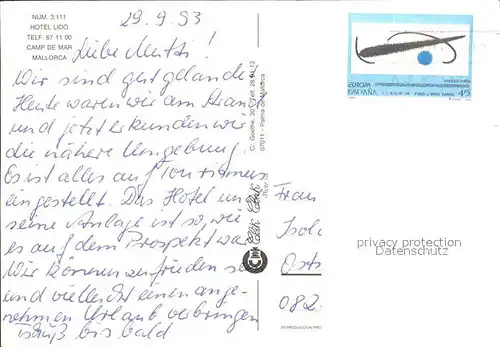 NUM. 3.111
HOTEL LIDO
TELF. 67 11 00
CAMP DE MAR
MALLORCA
29.9.93
Liebe Mutti!
Wir sind gut gelandet
Heute waren wir am Strand
und jetzt erkunden wir
die nähere Umgebung.
Es ist alles auf Tourismus
eingestellt. Das Hotel und
seine Anlage ist so, wie
es auf dem Prospekt war
Wir können zufrieden sein
und vielleicht einen ange-
nehmen Urlaub verbringen
Tschüß bis bald
07011 - Palma de Mallorca
EUROPA
ESPAÑA
45
Frau
Isol
Osts
082
privacy protection
AK-Ansichtskarten.de
REPRODUCCION PRO